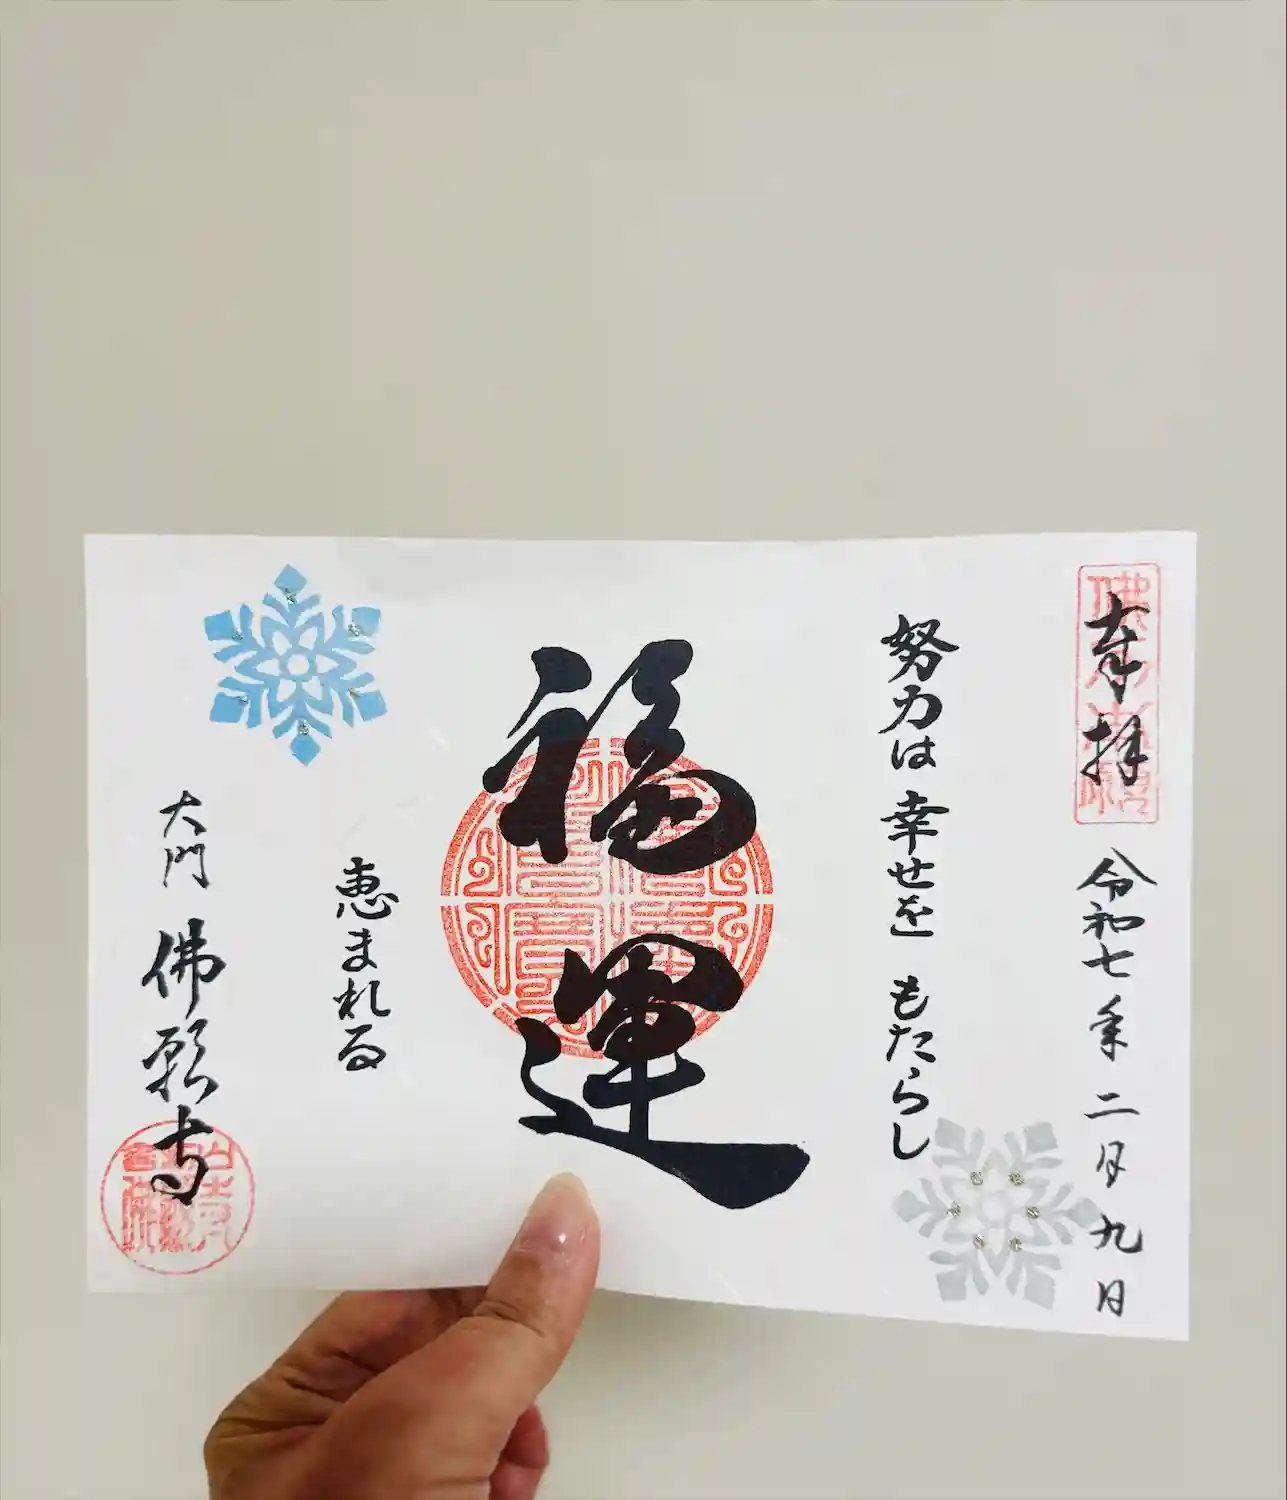 奉拝
令和七年二月九日
努力は 幸せを もたらし
福運
恵まれる
大門 佛願寺